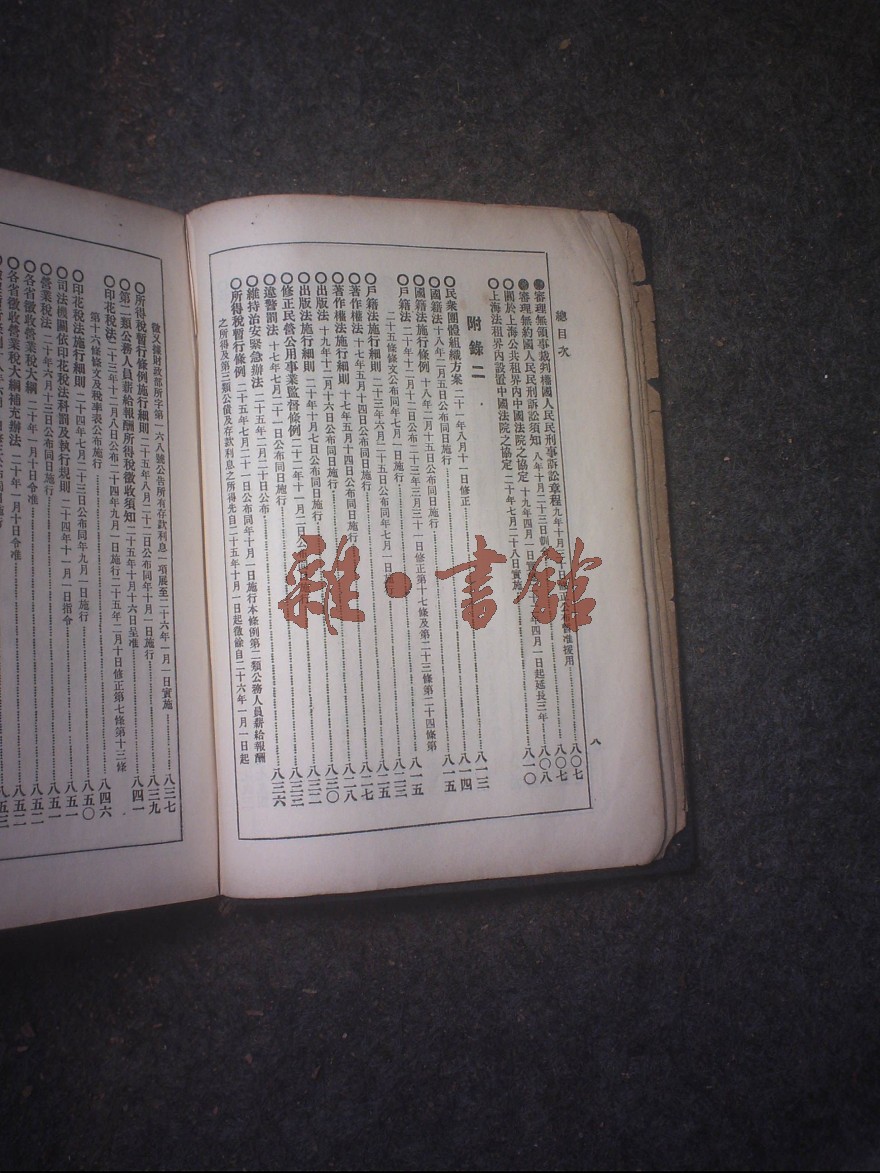 總目次
審理無領事裁判權國人民民刑事訴訟章程九年十月三十日修正公布暫准援用 八〇七
審理無約國人民民刑訴訟須知 八年十月二十三日 八〇七
〇關於上海公共租界內中國法院之協定 十九年四月一日實施二十二年四月一日起延長三年 八〇八
〇上海法租界內設置中國法院之協定 二十年七月二十八日實施 八一〇
附錄二
〇民衆團體組織方案 二十一年八月十一日修正 八一三
〇國籍法 十八年二月五日公布同日施行 八一四
〇國籍法施行條例 十八年二月十五日公布同日施行 八一五
〇戶籍法 二十年十二月十二日公布二十三年三月三十一日修正第十七條及第二十三條第二十四條第
二十五條條文公布同年七月一日施行 八一五
〇戶籍法施行細則 二十三年六月二十五日公布同年七月一日施行 八二三
〇著作權法 十七年五月十四日公布同日施行 八二五
〇著作權法施行細則 十七年五月十四日公布同日施行 八二七
〇出版法 十九年十二月十六日公布同日施行 八二八
〇出版法施行細則 二十年十月七日公布同日施行 八三〇
〇修正民營公用事業監督條例 二十二年十一月二日公布同日施行 八三二
〇違警罰法 十七年七月二十一日公布同日施行 八三三
〇維持治安緊急辦法 二十五年二月二十日公布 八三六
〇所得稅暫行條例 二十五年七月二十一日公布同年十月一日施行本條例第二類公務人員薪給報酬
之所得及第三類公債及存款利息之所得先自二十五年十月一日起徵餘自二十六年一月一日起
八
徵又據財政部所字第一六八號公告所有存款利息一項展至二十六年一月一日實施 八三七
〇所得稅暫行條例施行細則 二十五年八月二十二日公布同年十月一日施行 八三九
〇第二類公務人員薪給報酬所得稅徵收須知 二十五年十月十六日呈准 八四一
〇印花稅法 二十三年十二月八日公布二十四年九月一日施行二十五年二月十日修正第七條第十三條
第十六條條文及稅率表公布施行 八四六
〇印花稅法施行細則 二十四年七月二十三日公布同年九月一日施行 八五〇
〇司法機關依印花稅法科罰及執行規則 二十四年十一月一日指令 八五一
〇營業稅法 二十年六月十三日公布同日施行 八五一
〇各省徵收營業稅大綱 二十年一月十日令准 八五二
〇各省徵收營業稅大綱補充辦法 二十年一月十日令准 八五二
八五三
雜·書館